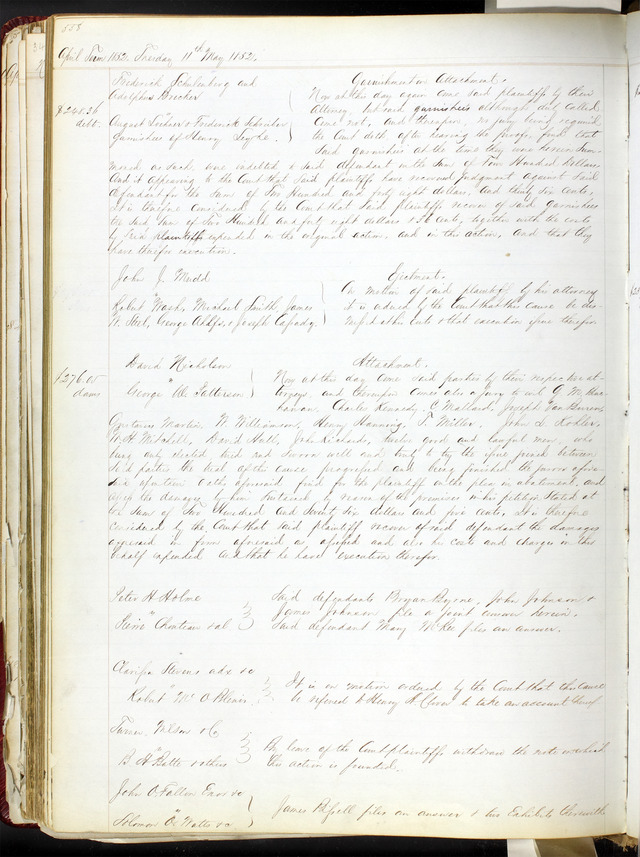 558
April Term 1852, Tuesday 11th May 1852.
Frederick Schulenburg and
Adolphus Boeckeler
vs
August and Frederick
Garnishees of Henry
$248.36
debt.
Garnishment on Attachment.
Now at this day again come said plaintiffs by their
Attorney but said garnishees although duly called
come not, and therefore, no jury being required
the Court doth after hearing the proofs, find that
said garnishees at the time they were served Sum-
moned as such, were indebted to said defendant in the Sum of Four Hundred dollars
And it appearing to the Court that Said plaintiffs have recovered judgment against Said
defendant for the Sum of Two Hundred and forty eight dollars, and thirty six cents,
It is therefore considered by the Court that Said plaintiffs recover of said Garnishees
the said Sum of Two Hundred and forty eight dollars & 36 cents, together with the costs
by said plaintiffs expended in the original action, and in this action, and that they
have therefor execution.
John J. Mudd
vs
Robert Wash, Michael Smith, James
W. Steel, George & Joseph
Ejectment.
On motion of said plaintiff by his attorney
it is ordered by the Court that this cause be dis-
missed at his costs & that execution issue therefor.
$276.05
dams
David Nicholson
vs
George W. Patterson
Attachment.
Now at this day come said parties by their respective at-
torneys, and thereupon comes also a jury to wit
Charles Kennedy, C. Mallard, Joseph Van Buren,
Martin, W. Williamson, Henry Hanning, Miller, John
W. H. Mitchell, David Hall, John Richards, twelve good and lawful men, who
being duly elected tried and sworn well and truly to try the issue joined between
Said parties the trial of this cause progressed and being finished the jurors afore-
said upon their oaths aforesaid find for the plaintiff on the plea in abatement, and
assess the damages by him sustained by reason of the premises in his petition stated at
the Sum of Two Hundred and Seventy Six dollars and five cents, It is therefore
considered by the Court that said plaintiff recover of said defendant the damages
assessed in form aforesaid as assessed and also his costs and charges in this
behalf expended and that he have execution therefor.
Peter H Holme
vs
Pierre Chouteau et al.
Said defendants Bryan Byrne, John Johnson &
James Johnson file a joint answer herein.
Said defendant Mary McRee files an answer.
Clarissa Stevens adx &c
vs
Robert Mc O Blenis
It is on motion ordered by the Court that this cause
be referred to Henry to take an account thereof
Turner, Wilson & Co
vs
B H & others
By leave of the Court plaintiffs withdraw the note on which
this action is founded.
John O. Fallon Exor &c
vs
Solomon &c
James Russell files an answer & two Exhibits therewith